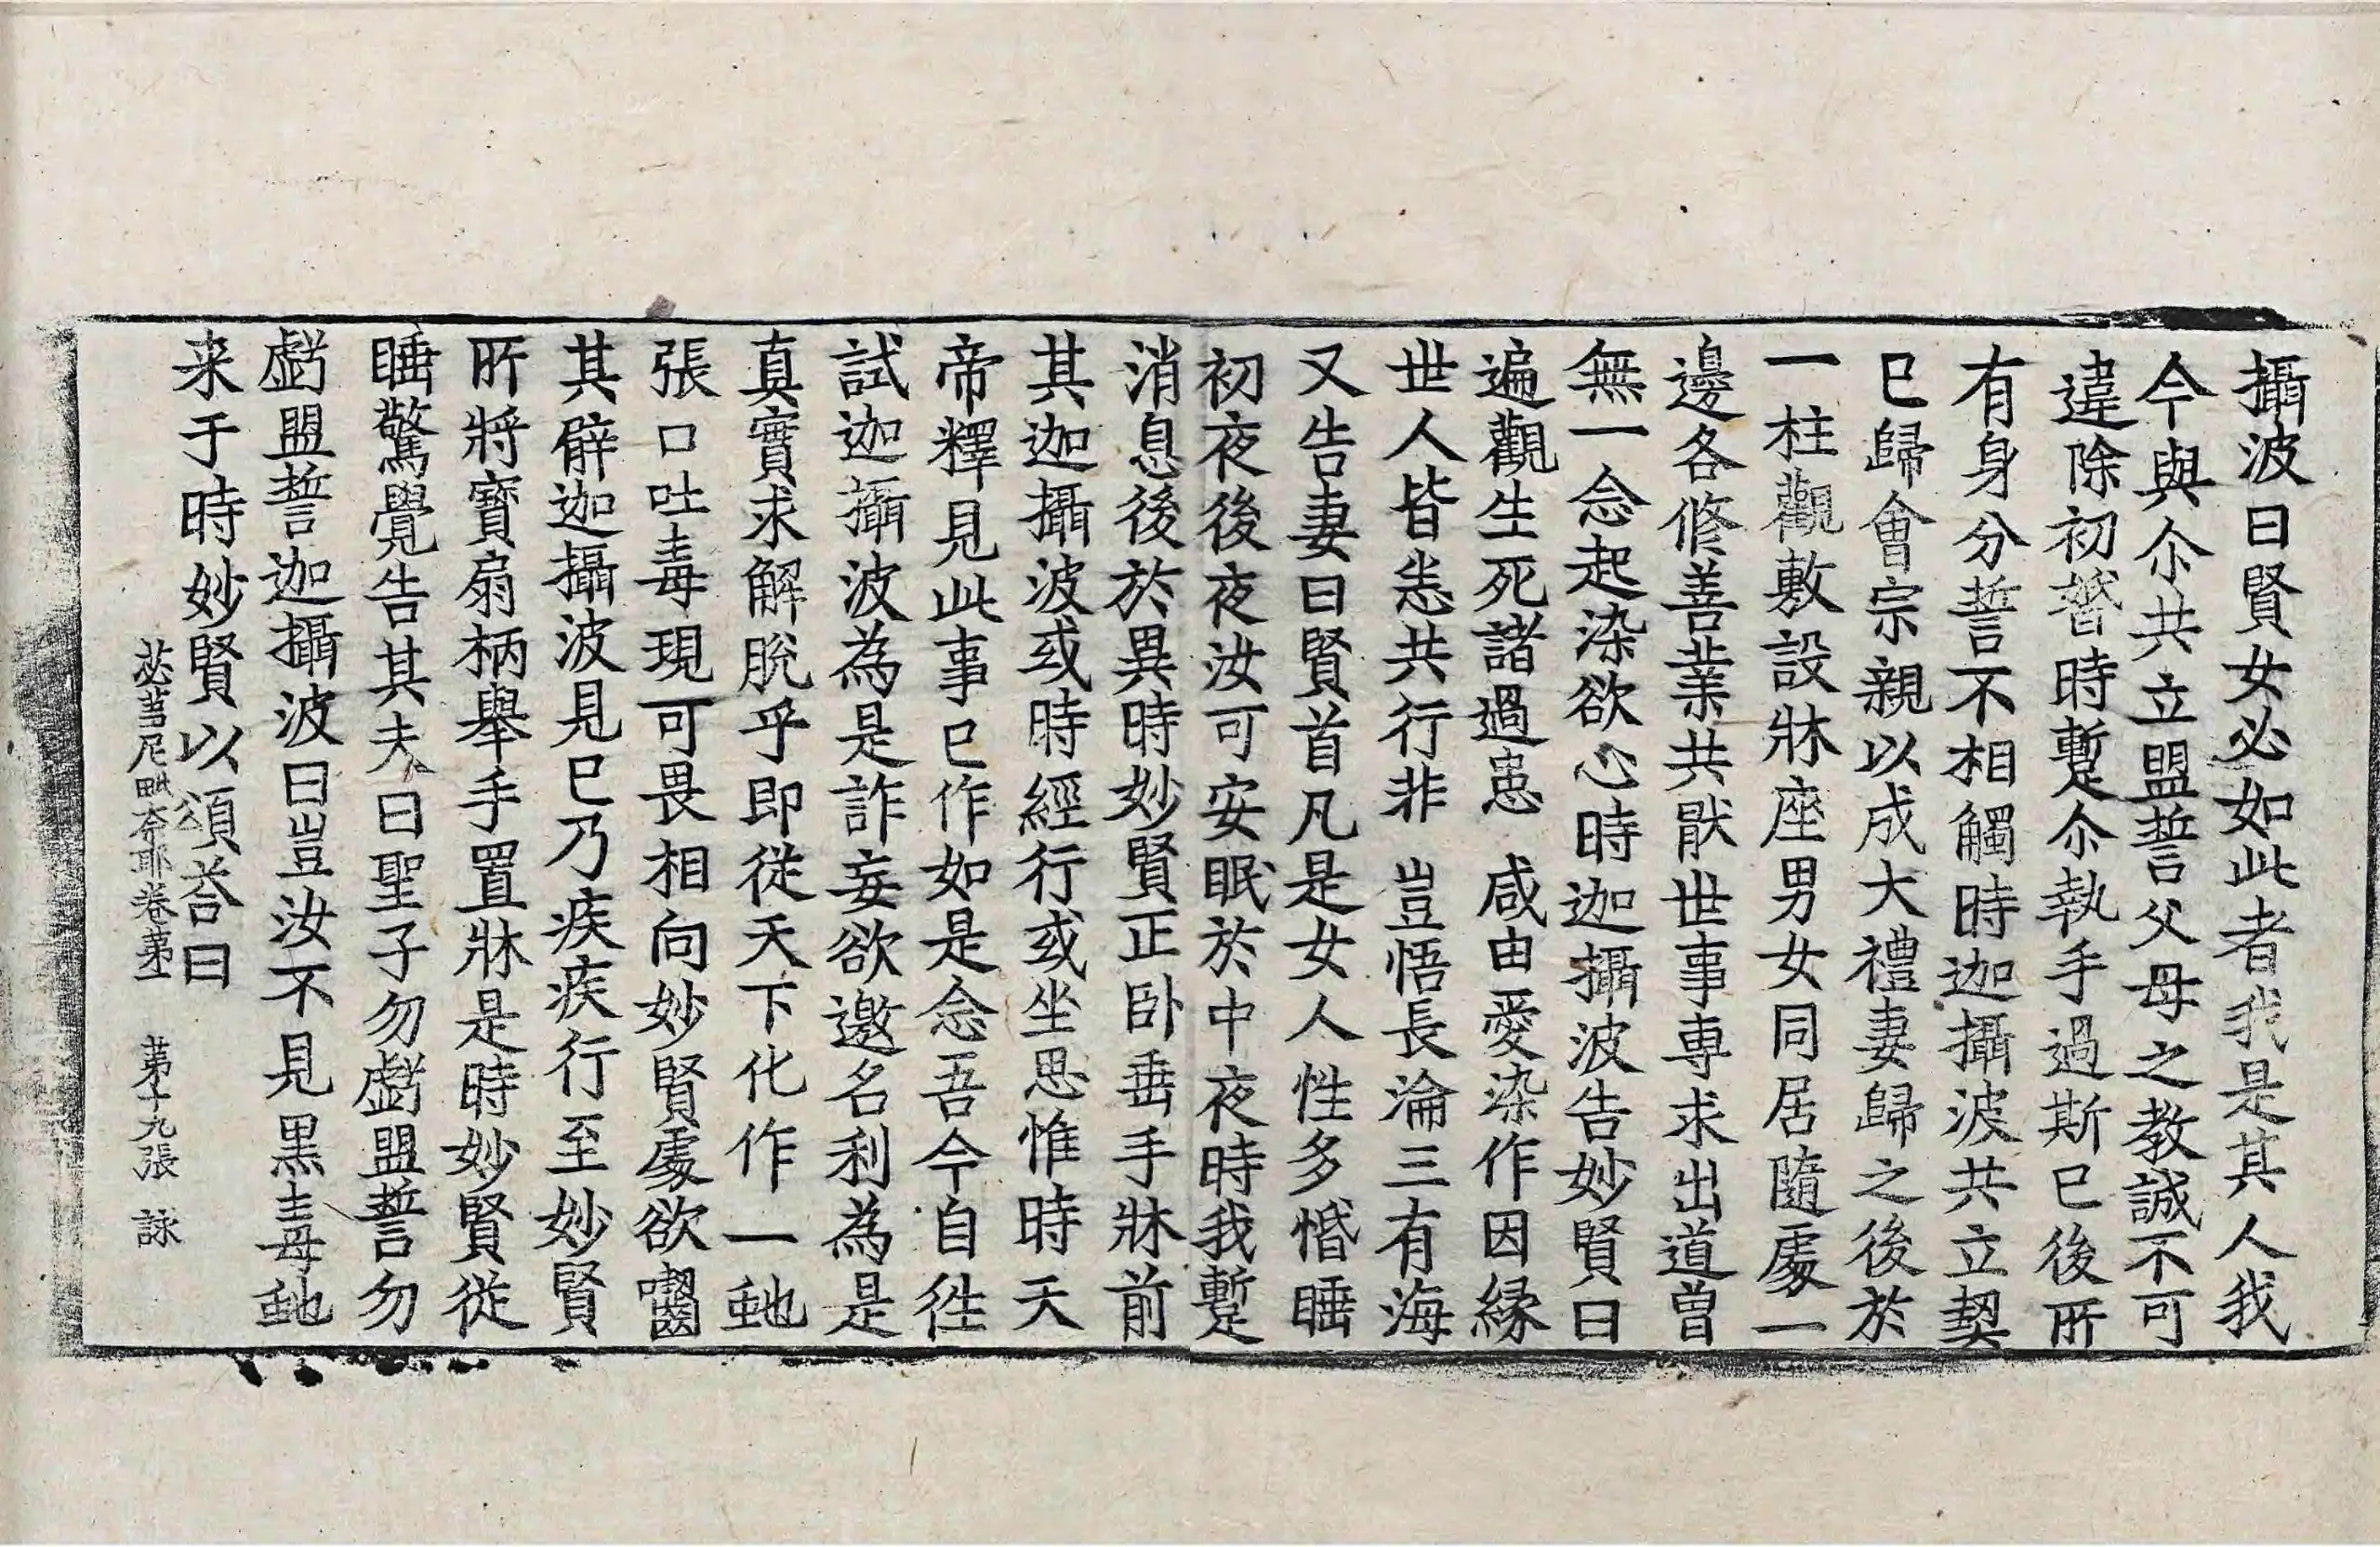 攝波曰賢女必如此者我是其人我
今與尒共立盟誓父母之教誠不可
違除初㛰時暫尒執手過斯已後所
有身分誓不相觸時迦攝波共立契
已歸會宗親以成大禮妻歸之後於
一柱觀敷設牀座男女同居隨處一
邊各修善業共猒世事專求出道曾
無一念起染欲心時迦攝波告妙賢曰
遍觀生死諸過患 咸由愛染作因緣
世人皆恙共行非 豈悟長淪三有海
又告妻曰賢首凡是女人性多惛睡
初夜後夜汝可安眠於中夜時我暫
消息後於異時妙賢正卧垂手牀前
其迦攝波或時經行或坐思惟時天
帝釋見此事已作如是念吾今自徃
試迦攝波為是詐妄欲邀名利為是
真實求解脫乎即從天下化作一虵
張口吐毒現可畏相向妙賢處欲囓
其臂迦攝波見已乃疾疾行至妙賢
所將寶扇柄舉手置牀是時妙賢從
睡驚覺告其夫曰聖子勿虧盟誓勿
虧盟誓迦攝波曰豈汝不見黑毒虵
来于時妙賢以頌荅曰
苾芻尼毗奈耶卷第一 第十九張 詠